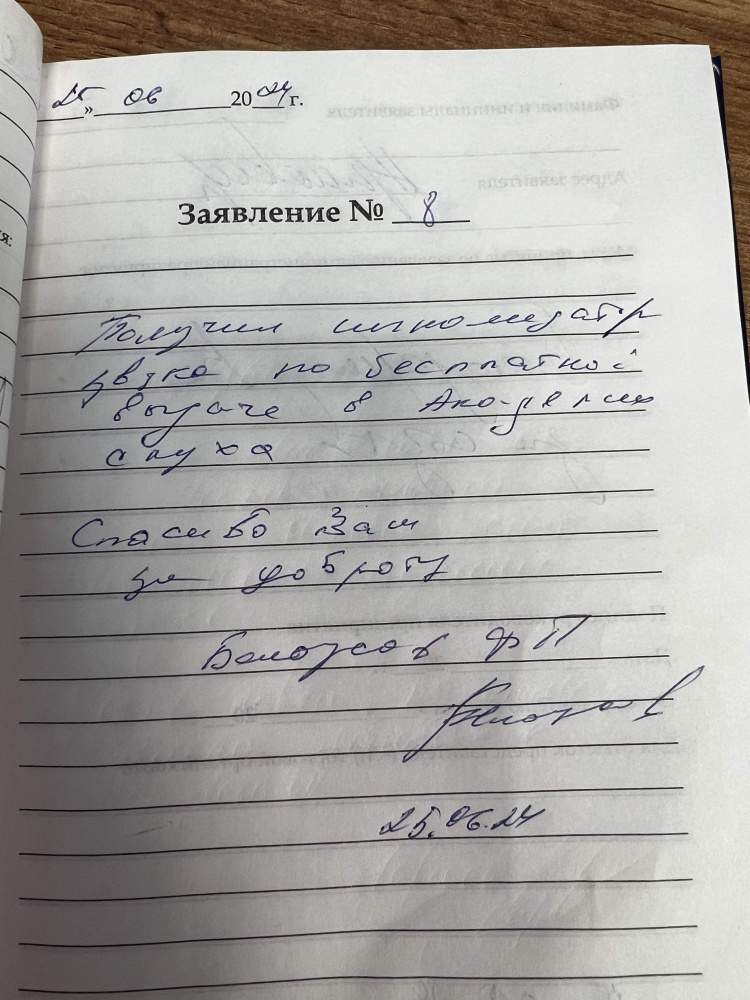 25 » 06 2024 г.
Заявление № 8
Получил
звука по бесплатной
выдаче в Академии
слуха
Спасибо Вам
за доброту
Ф П
25.06.24